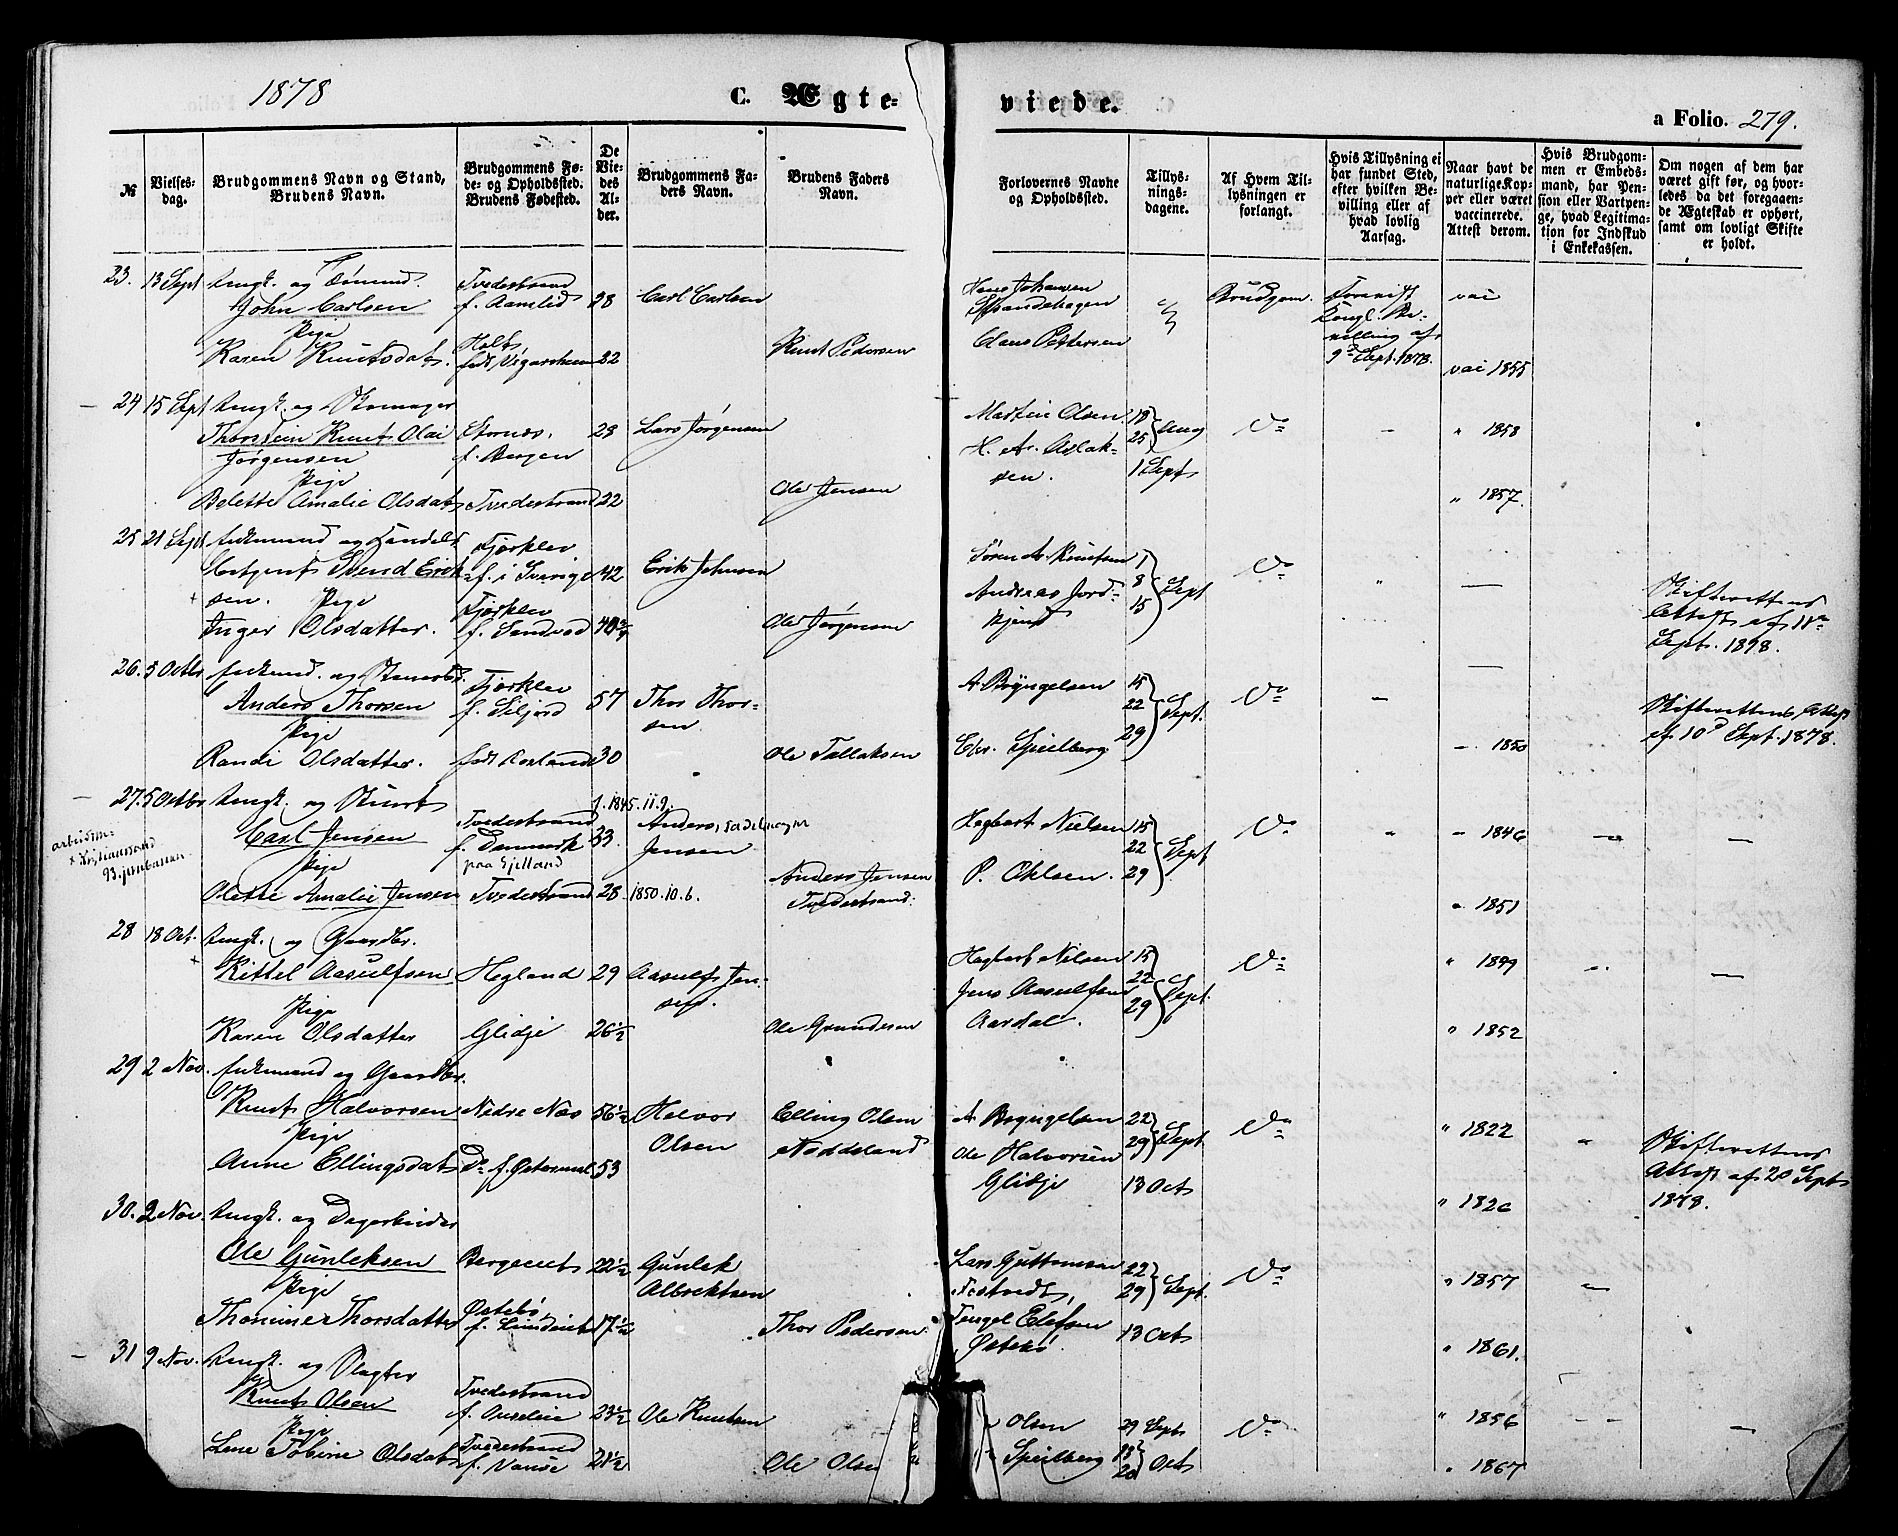 1878
C. Ægte-
viede.
a Folio. 279.
№
Vielses-
dag.
Brudgommens Navn og Stand,
Brudens Navn.
Brudgommens Fø-
de- og Opholdssted.
Brudens Fødested.
De
Vie-
des
Al-
der.
Brudgommens Fa-
ders Navn.
Brudens Faders
Navn.
Forlovernes Navne
og Opholdssted.
Tillys-
nings-
dagene.
Af Hvem Til-
lysningen er
forlangt.
Hvis Tillysning ei
har fundet Sted,
efter hvilken Be-
villing eller af
hvad lovlig
Aarsag.
Naar havt de
naturlige Kop-
per eller været
vaccinerede.
Attest derom.
Hvis Brudgom-
men er Embeds-
mand, har Pen-
sion eller Vartpen-
ge, hvad Legitima-
tion for Indskud
i Enkekassen.
Om nogen af dem har
været gift før, og hvor-
ledes da det foregaaen-
de Ægteskab er ophørt,
samt om lovligt Skifte
er holdt.
23. 13 Sept Ungk. og Tømmd.
John Carlsen
Pige
Karen Knutsdat.
Tvedestrand
f. Aamlid 28
Holt,
født Vegarsheien 22
Carl Carlsen
Knut Pedersen
Hans Johansen
Strandehagen
Claus Pettersen
Brudgom.
Foreviist
Kongl. Be-
villing af
9d Sept. 1878.
vac
vac 1855
24 15 Sept Ungk. og Skomager
Thorstein Knut Olai
Jørgensen
Pige
Belette Amalie Olsdat
f. Bergen 23
Tvedestrand 22
Lars Jørgensen
Ole Jensen
Martin Olsen
H. A. Aslak-
sen.
18
25 Aug
1 Sept
Do
" 1858
" 1857.
25 21 Sept Enkemand og Handels
betjent Svend Erik-
sen. Pige
Inger Olsdatter.
Fjørklev
f. i Sverige 42
Fjørklev
f. Sandved
Erik Johnsen
Ole Jørgensen
Søren A. Knutsen
Andreas Jord-
kjend
1
8
15 Sept
Do
Skifterettens
Attest af 11te
Sept. 1878.
26. 5 Octbr Enkemd. og
Anders Thorsen
Pige
Randi Olsdatter.
Fjørklev
f. Siljord 57
født 30
Thor Thor-
sen
Ole Tallaksen
A Bryngelsen
Chr. Speilberg
15
22
29 Sept.
Do
" 1850
Skifterettens Attest
af 10d Sept. 1878.
27. 5 Octbr Ungk. og
Carl Jensen
Pige
Olette Amalie Jensen
+ Kristianssand
Tvedestrand
f. Danmark
paa Gjelland
33
f. 1845.11.9.
Anders, sadelmager
Jensen
Tvedestrand 28 1850.10.6.
Anders Jensen
Tvedestrand.
Hagbart Nielsen
P. Ohlsen.
15
22
29 Sept
Do
" 1846
" 1851
28 18 Oct. Ungk. og Gaardbr.
Kittel Aasulfsen
Pige
Karen Olsdatter
Hegland 29
Glidje 26½
Aasulf Jen-
sen.
Ole Gundersen
Hagbart Nilsen
Jens Aasulfsen
Aardal.
15
22
29 Sept.
Do
" 1849
" 1852
29 2 Nov. Enkemand og Gaardbr.
Knut Halvorsen
Pige
Anne Ellingsdat
Nedre Næs 56½
Do f. 53
Halvor
Olsen
Elling Olsen
A Bryngelsen
Ole Halvorsen
Glidje
22
29 Sept.
13 Oct
Do
" 1822
" 1826
Skifterettens
Attest af 20 Sept
1878.
30. 2 Nov. Ungk. og
Ole Gunleksen
Pige
Thomine Thorsdatter
22½
Østebø,
17½
Gunlek
Albrektsen
Thor Pedersen
Lars Guttormsen
Tengel Elefsen
Østebø
22
29 Sept.
13 Oct
Do
" 1857
" 1861.
31 9 Nov. Ungk. og Slagter
Knut Olsen
Pige
Lene Tobine Olsdat
Tvedestrand
23½
Tvedestrand
f. Vanse 21½
Ole Knutsen
Ole Olsen
Olsen
Speilberg
29 Sept
13
20 Oct
Do
" 1856
" 1867